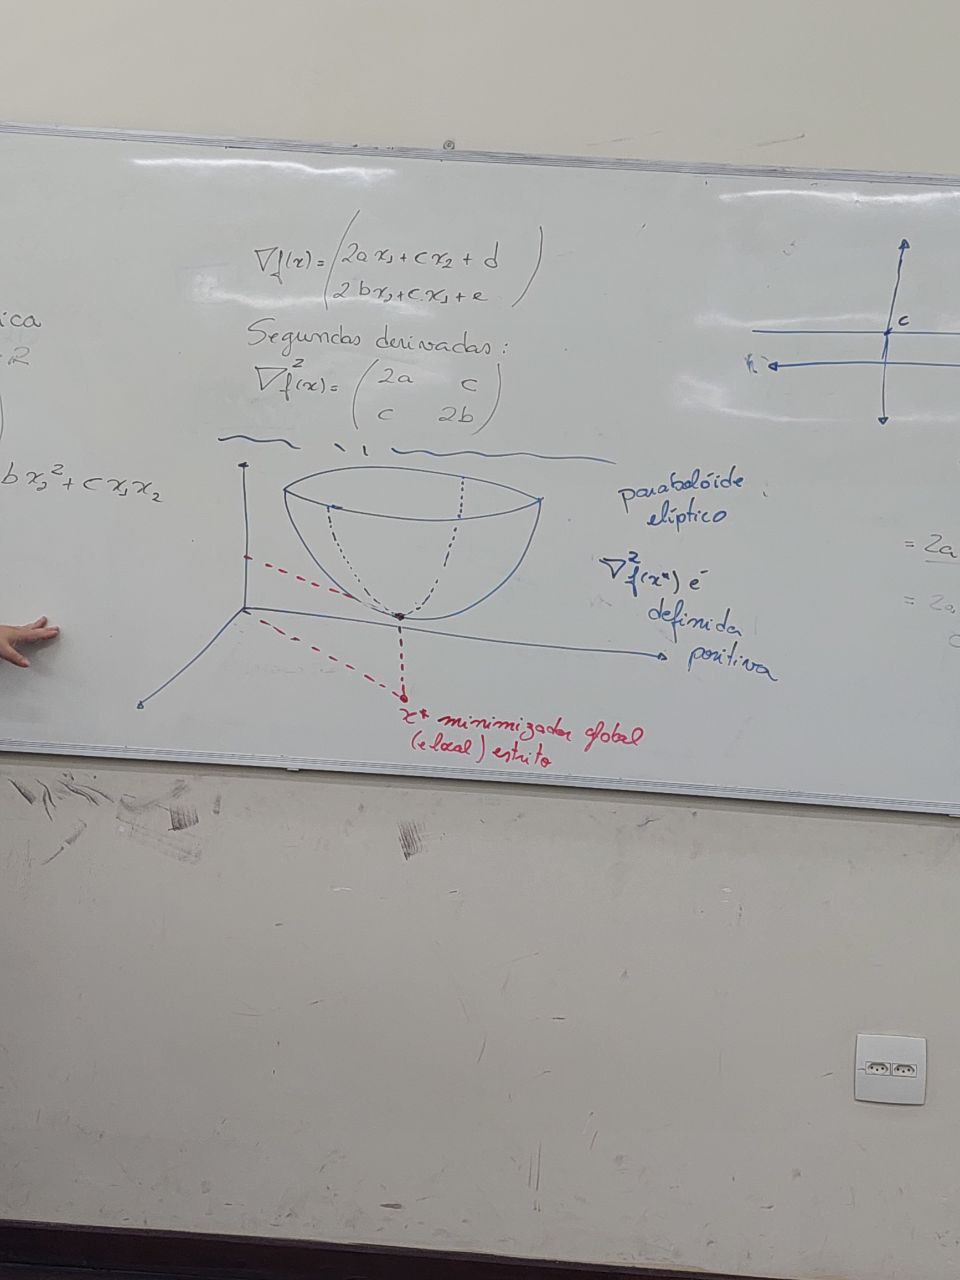 ica
2
b x₂² + c x₁x₂
∇f(x) = (2a x₁ + c x₂ + d
2 b x₂ + c x₁ + e)
Segundas derivadas:
∇²f(x) = (2a c
c 2b)
parabolóide
elíptico
∇²f(x*) é
definida
positiva
x* minimizador global
(e local) estrito
c
= 2a
= 2a